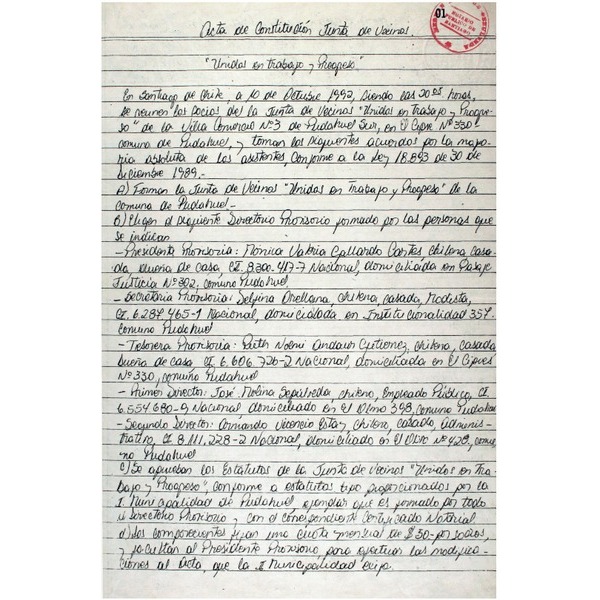 01
Acta de Constitución Junta de Vecinos
"Unidos en Trabajo y Progreso"
En Santiago de Chile, a 10 de Octubre 1992, siendo las 20 05 horas,
se reunen los socios de la Junta de Vecinos "Unidos en Trabajo y Progre-
so" de la Villa Comercio Nº3 de Pudahuel Sur, en El Cipre Nº330
comuna de Pudahuel, y toman los siguientes acuerdos por la mayo-
ria absoluta de los asistentes, conforme a la Ley 18.893 de 30 de
Diciembre 1989.-
A) Forman la Junta de Vecinos "Unidos en Trabajo y Progreso" de la
comuna de Pudahuel.-
B) Eligen el siguiente Directorio Provisorio formado por las personas que
se indican
-Presidenta Provisoria: Mónica Valeria Gallardo Cortes chilena casa-
da dueña de casa, CI. 8.200.417-7 Nacional, domiciliada en Pasaje
Justicia Nº202, comuna Pudahuel
-Secretaria Provisoria: Orellana, chilena, casada, Modista,
CI. 6.287.465-1 Nacional, domicialada en Institucionalidad 357.
comuna Pudahuel
-Tesorera Provisoria: Ruth Noemi Andaur Gutierrez, chilena, casada
dueña de casa CI 6.606.726-2 Nacional, domiciliada en El Cipres
Nº330, comuna Pudahuel
-Primer Director: José Molina Sepulveda, chileno, Empleado Público, CI
6.554.680-9 Nacional, domiciliado en El Olmo 398, comuna Pudahuel
-Segundo Director: Armando Vicencio chileno, casado, Adminis-
trativo, CI 8.111.228-2 Nacional, domiciliado en El Olivo Nº428, comu-
na Pudahuel
C) Se aprueban los Estatutos de la Junta de Vecinos "Unidos en Tra-
bajo y Progreso", conforme a estatutos tipo proporcionados por la
I Municipalidad de Pudahuel ejemplar que es firmado por todo
el Directorio Provisorio y con el correspondiente Certificado Notarial
d) Los comparecientes fijan una cuota mensual de $30- por socios,
y facultan al Presidente Provisorio, para efectuar las modifica-
ciones al Acta, que la I Municipalidad exija.